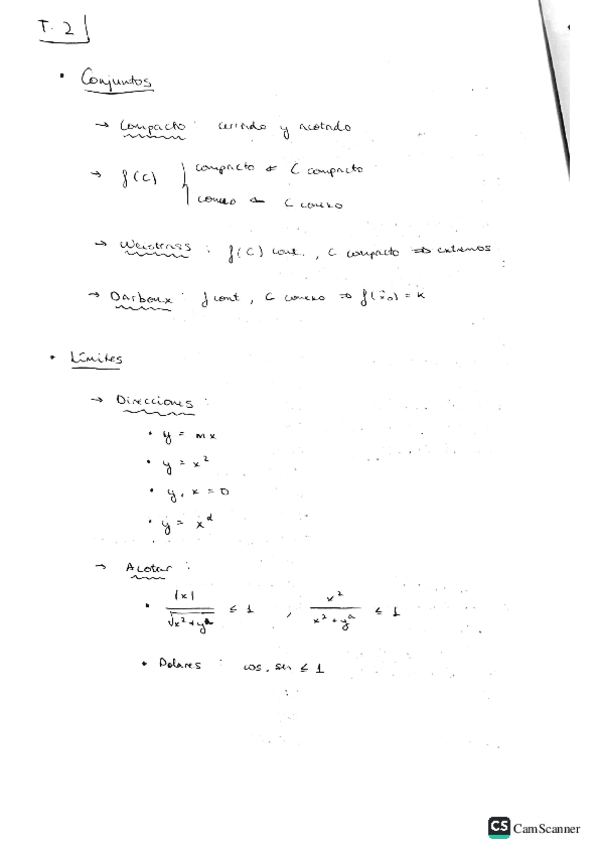 T. 2
• Conjuntos
→ Compacto : cerrado y acotado
→ f(C) { compacto ⇐ C compacto
conexo ⇐ C conexo
→ Weistrass : f(C) cont., C compacto ⇒ extremos
→ Darboux : f cont, C conexo ⇒ f(x0) = k
• Límites
→ Direcciones :
• y = mx
• y = x²
• y, x = 0
• y = x^α
→ Acotar :
• |x| / √(x² + y²) ≤ 1 , x² / (x² + y²) ≤ 1
• Polares : cos, sen ≤ 1
CS CamScanner